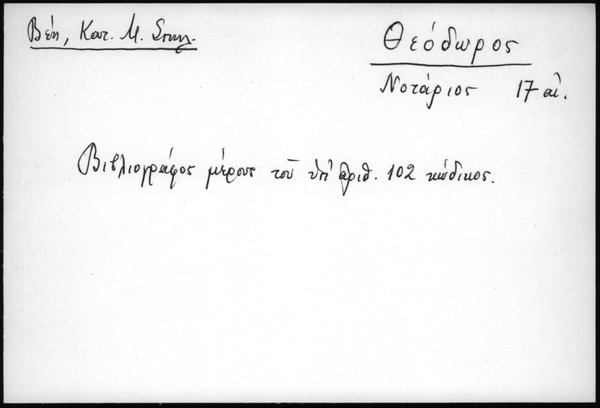 Βέη, Κατ. Μ. Σπηλ.
Θεόδωρος
Νοτάριος 17 αἰ.
Βιβλιογράφος μέρους τοῦ ὑπ' ἀριθ. 102 κώδικος.